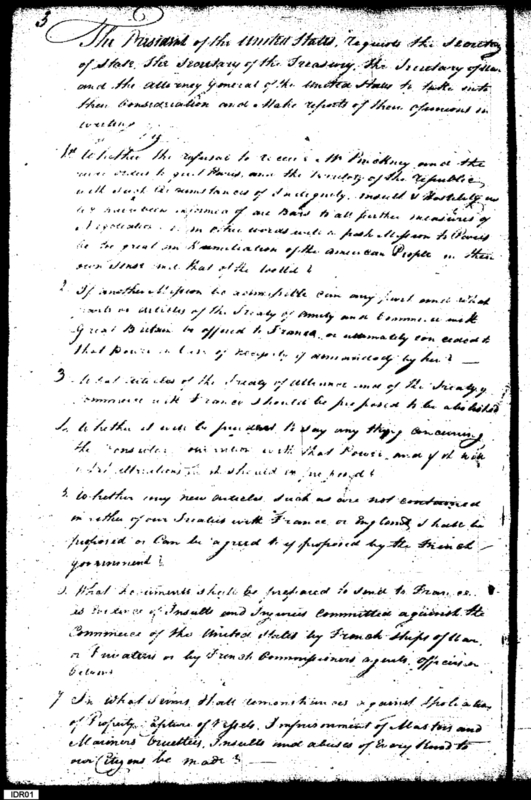 3
The President of the United States, requests the Secretary
of State, The Secretary of the Treasury, the Secretary of War
and the Attorney General of the United States to take into
their Consideration and Make reports of their opinions in
writing
1st Whether the refusal to receive Mr Pinckney and the
orders to quit Paris, and the territory of the republic,
with such circumstances of Indignity, Insult & Hostility as
we have been informed of are Bars to all further measures of
Negotiation or in other words will a fresh Mission to Paris
be too great an Humiliation of the American People in their
own sense and that of the World?
2 If another Mission be admissible can any part and what
parts or articles of the Treaty of Amity and Commerce with
Great Britain be offered to France, or ultimately conceded to
that Power in Case of Necessity if demanded by her? —
3 What Articles of the Treaty of Alliance and of the Treaty of
Commerce with France should be proposed to be abolished
Whether it will be prudent to say any thing concerning
the Consular Convention with that Power, and if it
what alterations in it should be proposed?
5 Whether any new articles such as are not contained
in either of our Treaties with France or England, shall be
proposed or Can be agreed to if proposed by the French
government?
What documents shall be prepared to send to France,
as Evidence of Insults and Injuries Committed against the
Commerce of the United States by French ships of War,
or Privateers or by French Commissioners, agents, officers or
7 In What Terms shall remonstrances against Spoliations
of Property, Capture of Vessels, Imprisonment of Masters and
Mariners Cruelties, Insults and abuses of Every Kind to
our Citizens be made? —
IDR01